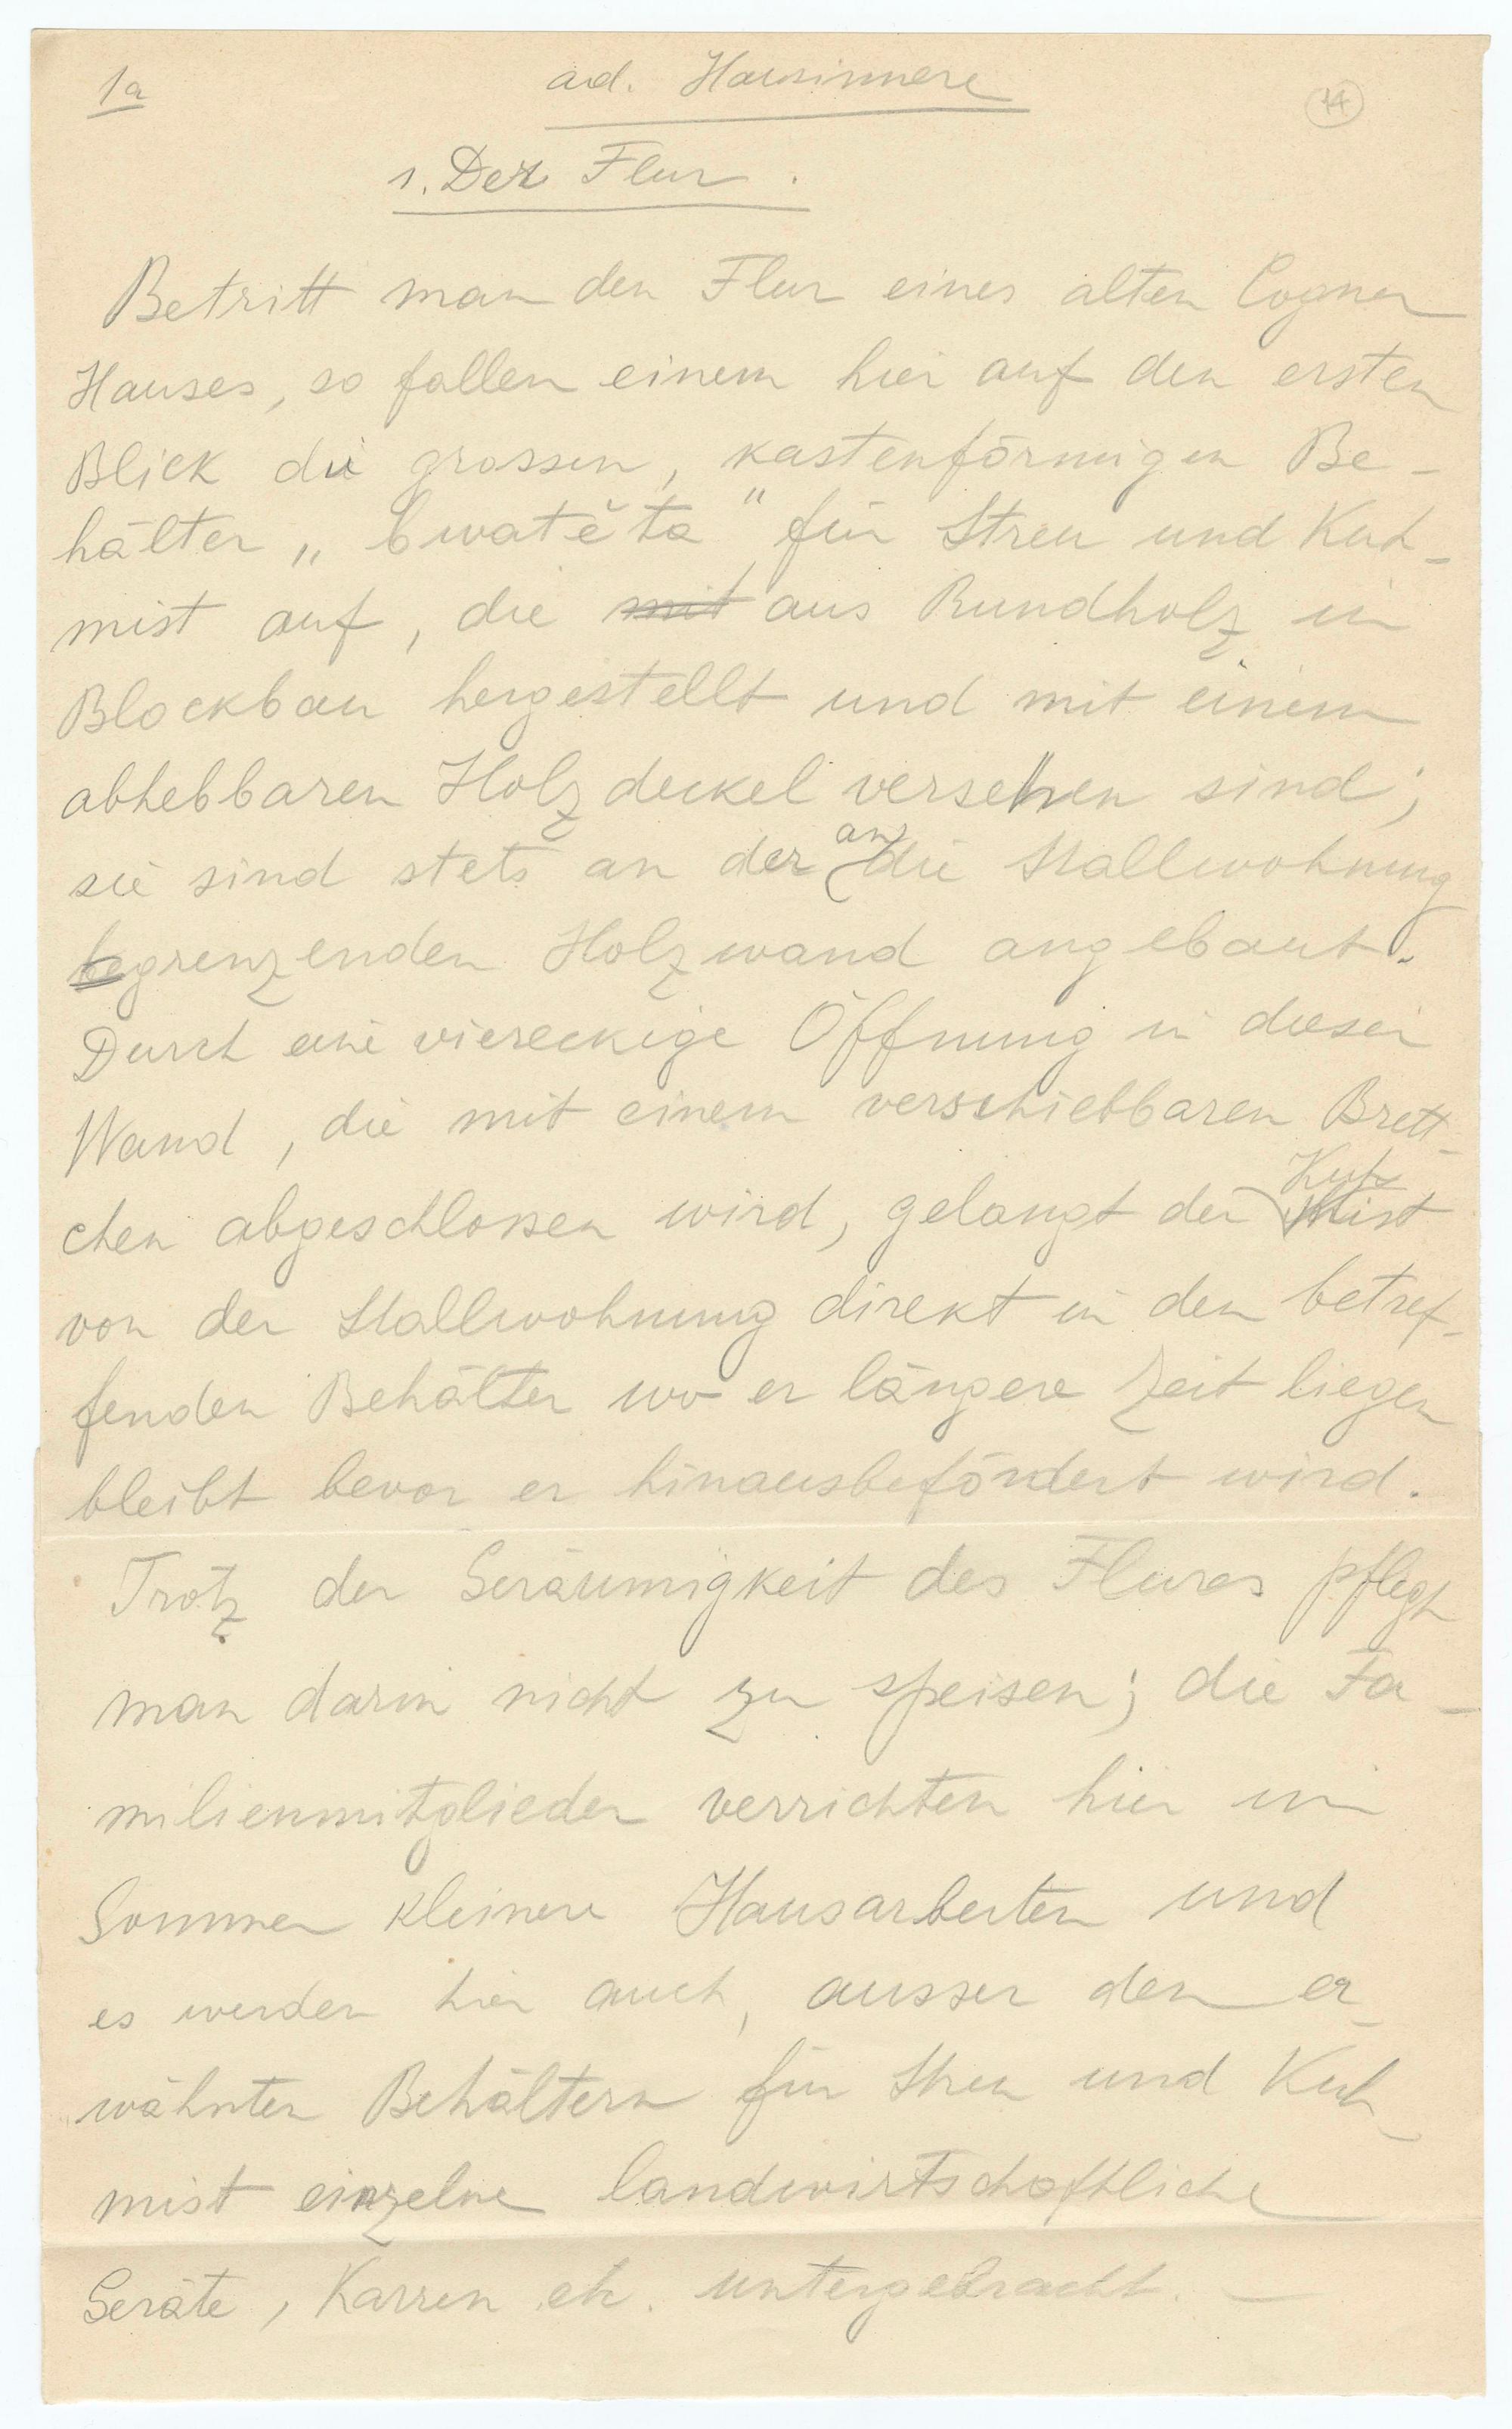 1a
ad. Hausinnere
14
1. Der Flur.
Betritt man den Flur eines alten Cogner
Hauses, so fallen einem hier auf den ersten
Blick die grossen, kastenförmigen Be-
hälter „bwatĕta" für Streu und Kuh-
mist auf, die mit aus Rundholz in
Blockbau hergestellt und mit einem
abhebbaren Holzdeckel versehen sind;
sie sind stets an der an die Stallwohnung
begrenzenden Holzwand angebaut.
Durch eine viereckige Öffnung in dieser
Wand, die mit einem verschiebbaren Brett-
chen abgeschlossen wird, gelangt der Kuhmist
von der Stallwohnung direkt in den betref-
fenden Behälter wo er längere Zeit liegen
bleibt bevor er hinausbefördert wird.
Trotz der Geräumigkeit des Flures pflegt
man darin nicht zu speisen; die Fa-
milienmitglieder verrichten hier im
Sommer kleinere Hausarbeiten und
es werden hier auch, ausser den er-
wähnten Behältern für Streu und Kuh-
mist einzelne landwirtschaftliche
Geräte, Karren etc. untergebracht. —